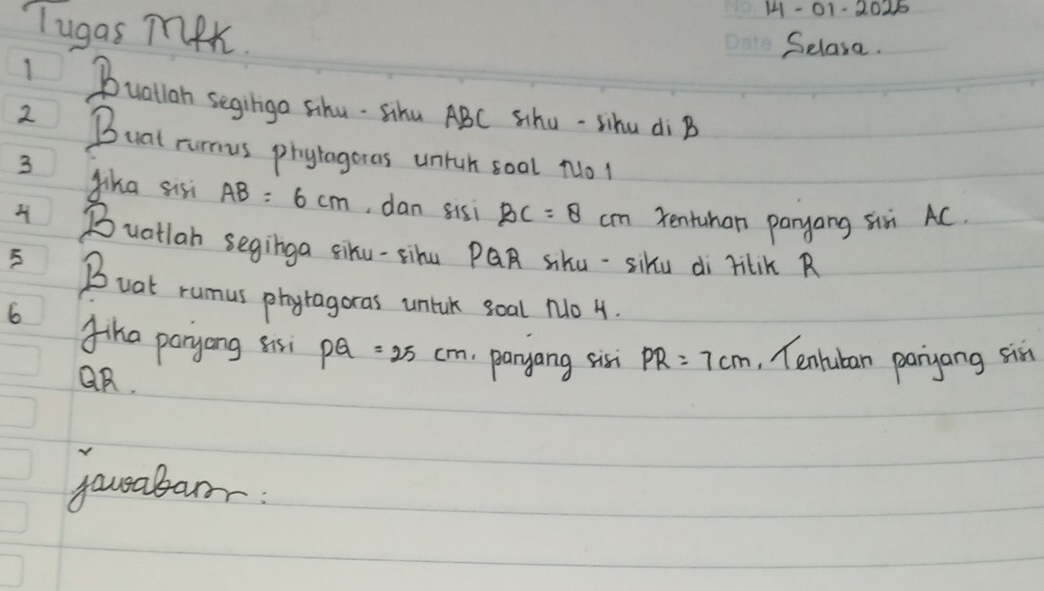 Tugas MTK.
No. 14-01-2025
Date Selasa.
1 Buatlah segitiga siku-siku ABC siku-siku di B
2 Buat rumus phytagoras untuk soal No 1
3 Jika sisi AB = 6 cm, dan sisi BC = 8 cm tentukan panjang sisi AC.
4 Buatlah segitiga siku-siku PQR siku-siku di titik R
5 Buat rumus phytagoras untuk soal No 4.
6 Jika panjang sisi PQ = 25 cm, panjang sisi PR = 7 cm, Tentukan panjang sisi
QR.
jawaban: